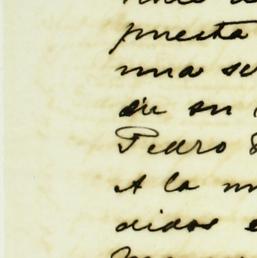 puesta
una su
en su
Pedro
A la m
didos e